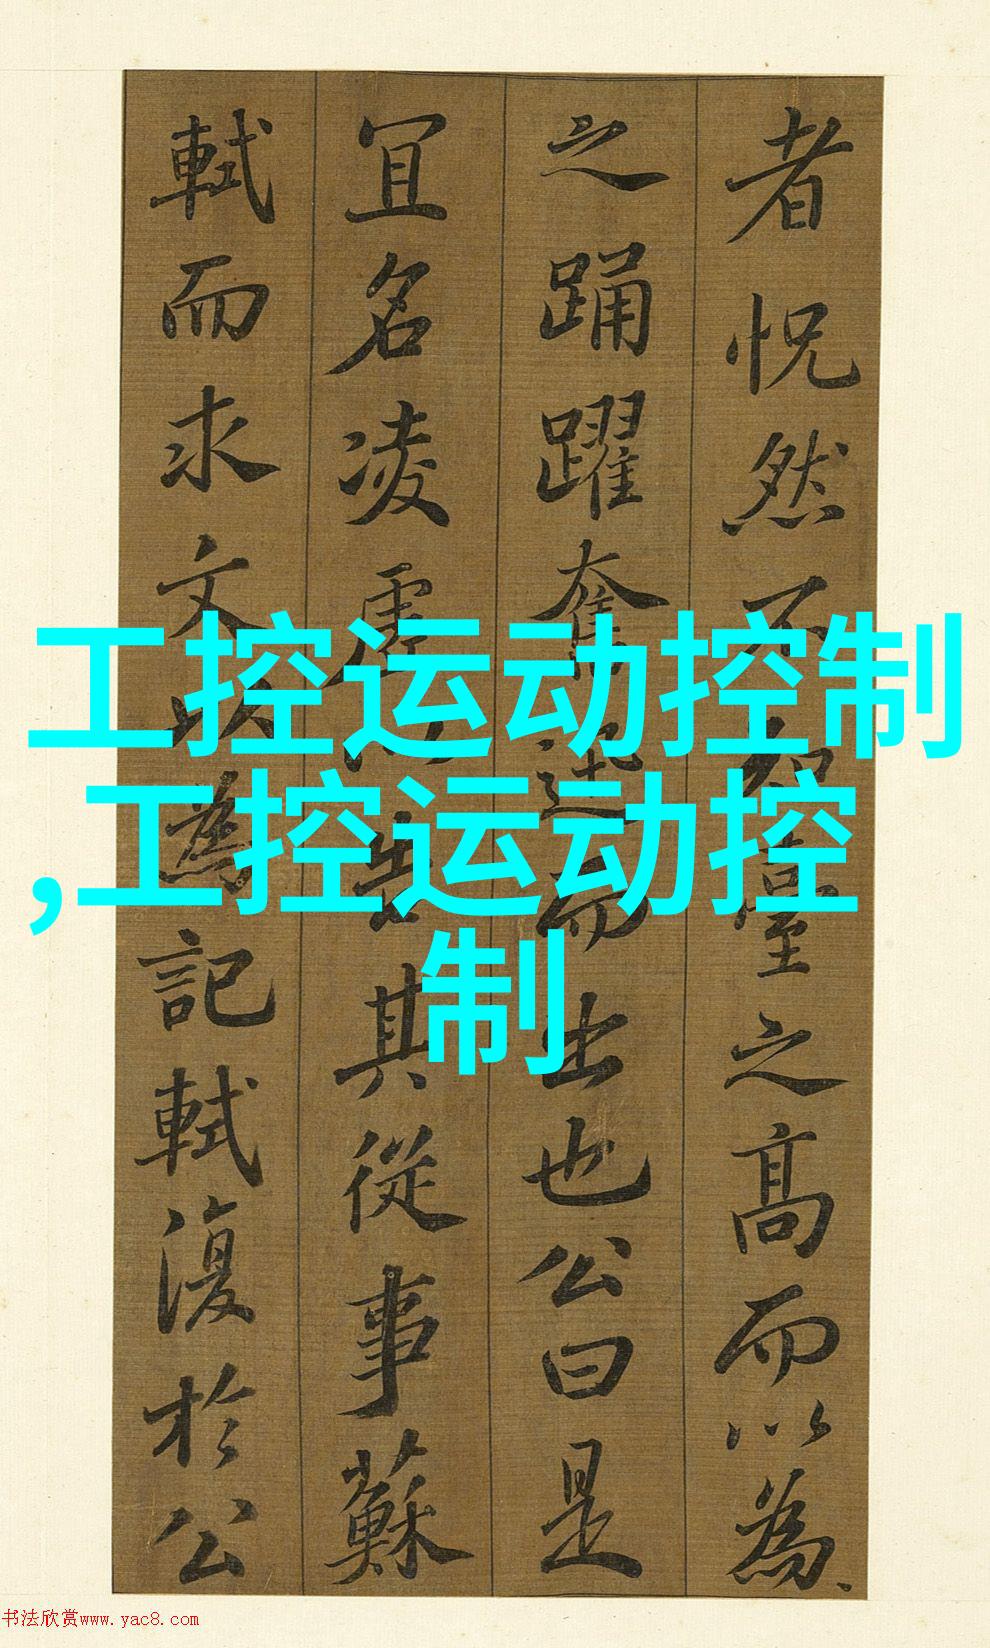 工控运动控制
,工控运动控
制
者怳然不知臺之高而以為
之踊躍奮迅而出也公曰是
宜名凌虛以告其從事蘇
軾而求文以為記軾復於公
书法欣赏www.yac8.com